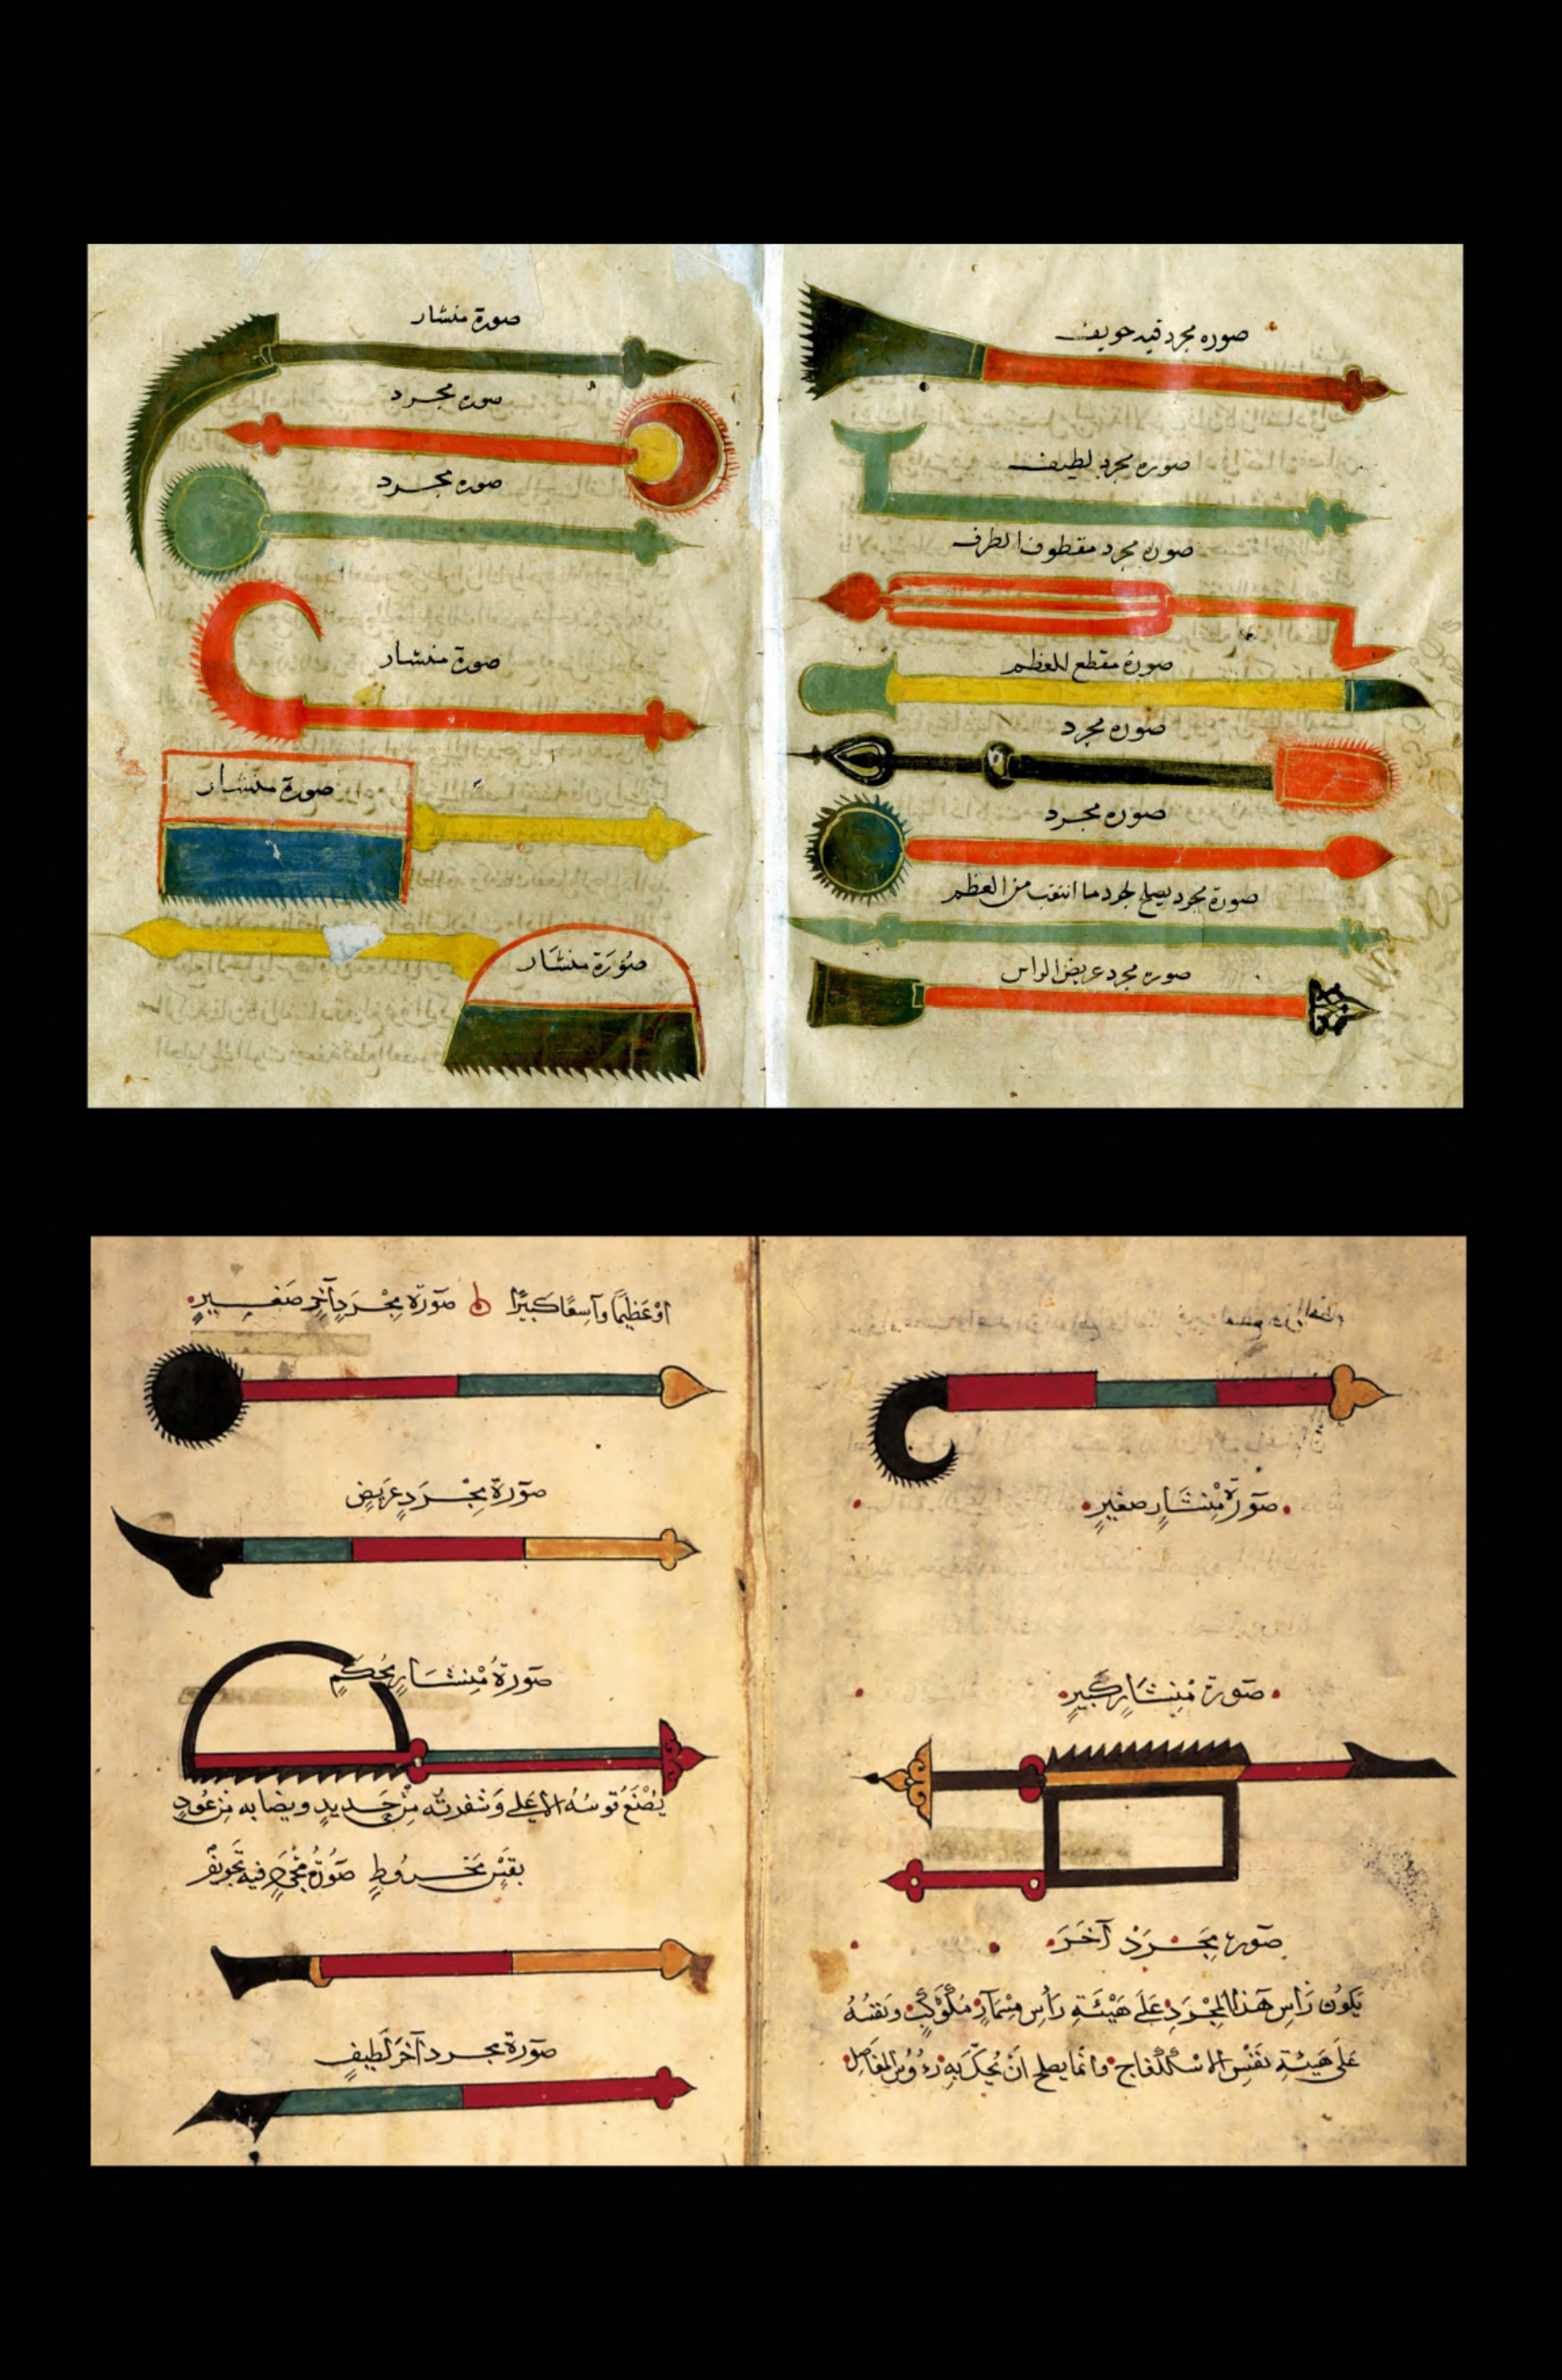 صوره مجرد فيه تجويف
صوره مجرد لطيف
صوره مجرد مقطوف الطرف
صورة مقطع للعظم
صوره مجرد
صوره مجرد
صورة مجرد يصلح لجرد ما انتقب من العظم
صوره مجرد عريض الراس
صورة منشار
صوره مجرد
صوره مجرد
صورة منشار
صورة منشار
صُوْرَة منشَار
صَوْرَةُ مِنْشَارٍ صَغِيرٍ
صَورة مِنشَارٍ كَبِيرٍ
صورة مِجْرَدْ آخَرَ
يَكونُ رَأس هَذا المِجْرَدِ عَلَى هَيْئَةِ رَأسِ مِسْمَارٍ مُكَوْكَبٍ ونَقشُهُ
عَلَى هَيئةِ نَقْشِ الاسْكَلْفاج وانما يصلح انْ يُحَكَّ بِهِ رُءُوسُ المفَاصِلِ
اوْ عَظِيمًا وَاسِعًا كَبيرًا صَورَة مِجْرَدٍ آخِر صَغِيرٍ
صَورَة مِجْرَدٍ عَرِيضٍ
صَورَةُ مِنْشَارٍ مُحكَمٍ
يُصْنَعُ قوسُهُ الاعلى وَشفرتُه مِنْ حَديدٍ ونصابه مِن عُودٍ
بقْسٍ مَخْروطٍ صَورَة مِجْرَدٍ فيه تَجْويفٌ
صَورَة مجرد آخَر لَطِيفٍ